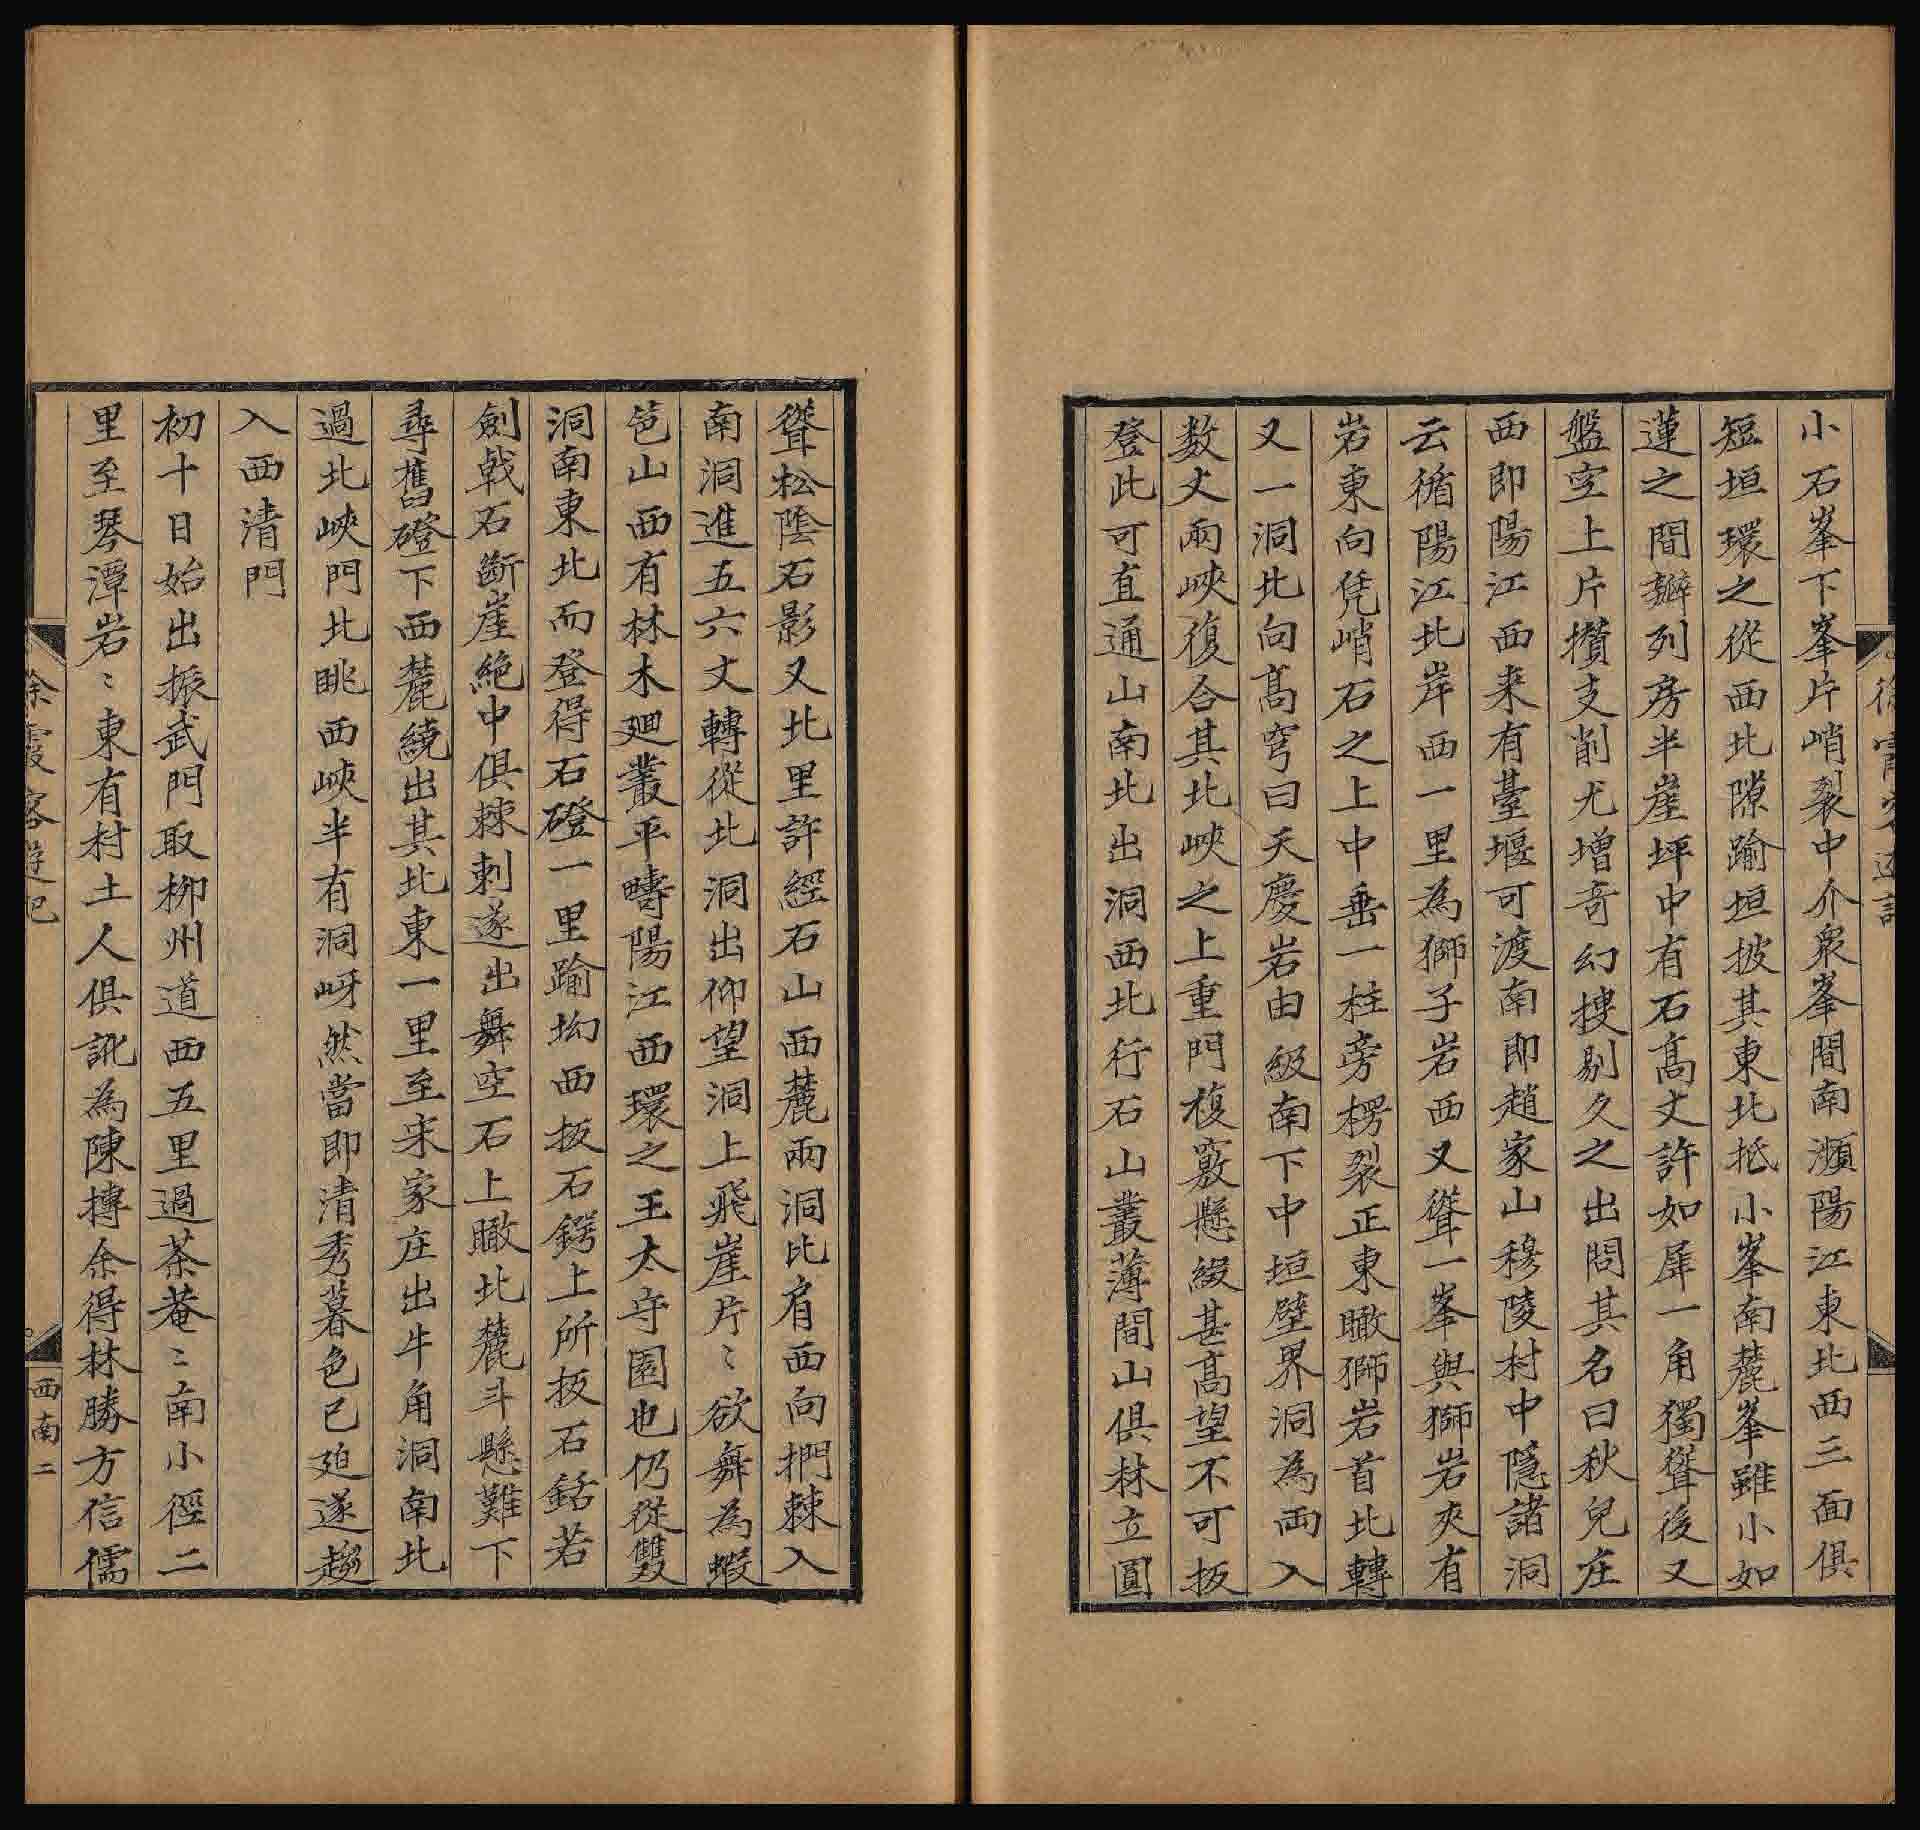 小石峯下峯片峭裂中介衆峯間南瀕陽江東北西三面俱
短垣環之從西北隙踰垣披其東北抵小峯南麓峯雖小如
蓮之間瓣列房半崖坪中有石髙丈許如犀一角獨聳後又
盤空上片攢支削尤增竒幻搜剔久之出問其名曰秋兒庄
西即陽江西来有臺堰可渡南即趙家山穆陵村中隱諸洞
云循陽江北岸西一里為獅子岩西又聳一峯與獅岩夾有
岩東向凭峭石之上中垂一柱旁楞裂正東瞰獅岩首北轉
又一洞北向髙穹曰天慶岩由級南下中垣壁界洞為両入
数丈兩峽復合其北峽之上重門複竅懸綴甚髙望不可扳
登此可直通山南北出洞西北行石山叢薄間山俱林立圓
聳松陰石影又北里許經石山西麓兩洞比肩西向捫棘入
南洞進五六丈轉從北洞出仰望洞上飛崖片〻欲舞為蝦
笆山西有林木廻叢平疇陽江西環之王太守園也仍從雙
洞南東北而登得石磴一里踰坳西扳石鍔上所扳石銛若
劍戟石斷崖絶中俱棘刺遂出舞空石上瞰北麓斗懸難下
尋舊磴下西麓繞出其北東一里至宋家庄出牛角洞南北
過北峽門北眺西峽半有洞岈然當即清秀暮色已廹遂趨
入西清門
初十日始出振武門取栁州道西五里過茶菴〻南小徑二
里至琴潭岩〻東有村土人俱訛為陳摶余得林勝方信儒
徐霞客遊記
西南二